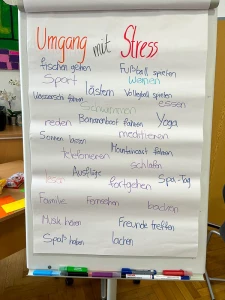 Umgang mit Stress
fischen gehen Fußball spielen
Sport Weinen
lästern Volleyball spielen
Wasserschi fahren essen
schwimmen
reden Bananenboot fahren Yoga
Sonnen tanzen meditieren
telefonieren Mountaincart fahren
schlafen
lesen Ausflüge fortgehen Spa-Tag
Familie Fernsehen backen
Musik hören Freunde treffen
Spaß haben lachen